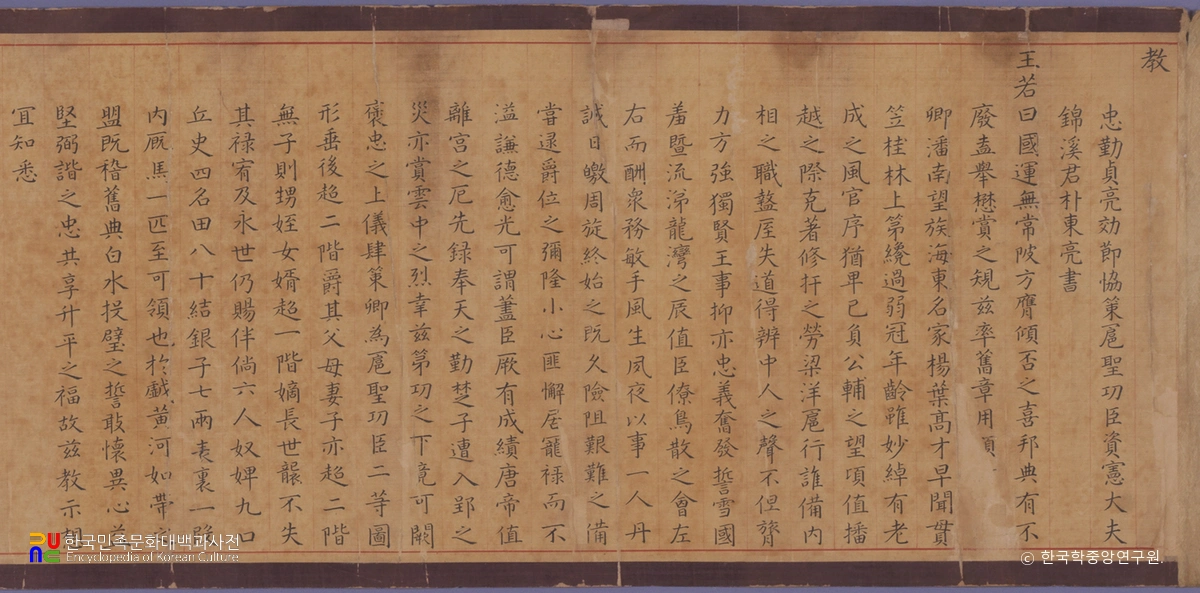 教
忠勤貞亮効節協策扈聖功臣資憲大夫
錦溪君朴東亮書
王若曰國運無常陂方膺傾否之喜邦典有不
廢盍舉懋賞之規玆率舊章用頒
卿潘南望族海東名家楊葉高才早聞貫
笠桂林上第纔過弱冠年齡雖妙綽有老
成之風官序猶卑已負公輔之望頃値播
越之際克著修扞之勞梁洋扈行誰備內
相之職盩厔失道得辨中人之聲不但膂
力方強獨賢王事抑亦忠義奮發誓雪國
羞暨流涕龍灣之辰値臣僚鳥散之會左
右而酬衆務敏手風生夙夜以事一人丹
誠日皦周旋終始之旣久險阻艱難之備
嘗逮爵位之彌隆小心匪懈居寵祿而不
溢謙德愈光可謂藎臣厥有成績唐帝値
離宮之厄先錄奉天之勤楚子遭入郢之
災亦賞雲中之烈幸玆第功之下竟可闕
褒忠之上儀肆策卿為扈聖功臣二等圖
形垂後超二階爵其父母妻子亦超二階
無子則甥姪女婿超一階嫡長世襲不失
其祿宥及永世仍賜伴倘六人奴婢九口
丘史四名田八十結銀子七兩表裏一
內廐馬一匹至可領也於戱黃河如帶
盟旣稽舊典白水投璧之誓敢懷異心
堅弼諧之忠共享升平之福故玆敎示想
宜知悉
한국민족문화대백과사전
Encyclopedia of Korean Culture
ⓒ 한국학중앙연구원.